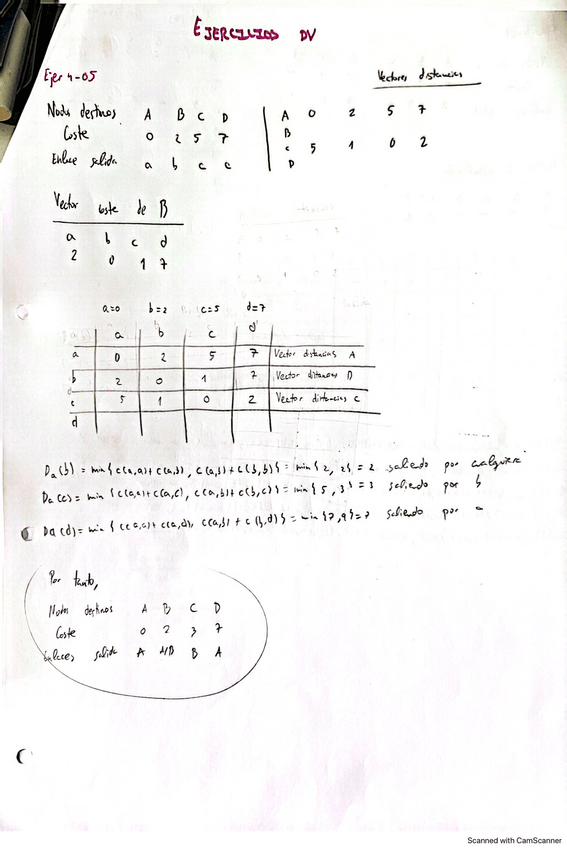 EJERCICIOS DV
Ejer 4-05
Vectores distancias
Nodos destinos A B C D
Coste 0 2 5 7
Enlace salida a b c c
A 0 2 5 7
B
C 5 1 0 2
D
Vector coste de B
a b c d
2 0 1 7
a=0 b=2 c=5 d=7
a b c d
a 0 2 5 7 Vector distancias A
b 2 0 1 7 Vector distancias D
c 5 1 0 2 Vector distancias C
d
Da(b) = min{c(a,a)+c(a,b), c(a,b)+c(b,b)} = min{2, 2} = 2 saliendo por cualquiera
Da(c) = min{c(a,a)+c(a,c), c(a,b)+c(b,c)} = min{5, 3} = 3 saliendo por b
Da(d) = min{c(a,a)+c(a,d), c(a,b)+c(b,d)} = min{7,9} = 7 saliendo por a
Por tanto,
Nodos destinos A B C D
Coste 0 2 3 7
Enlaces salida A A/D B A
Scanned with CamScanner